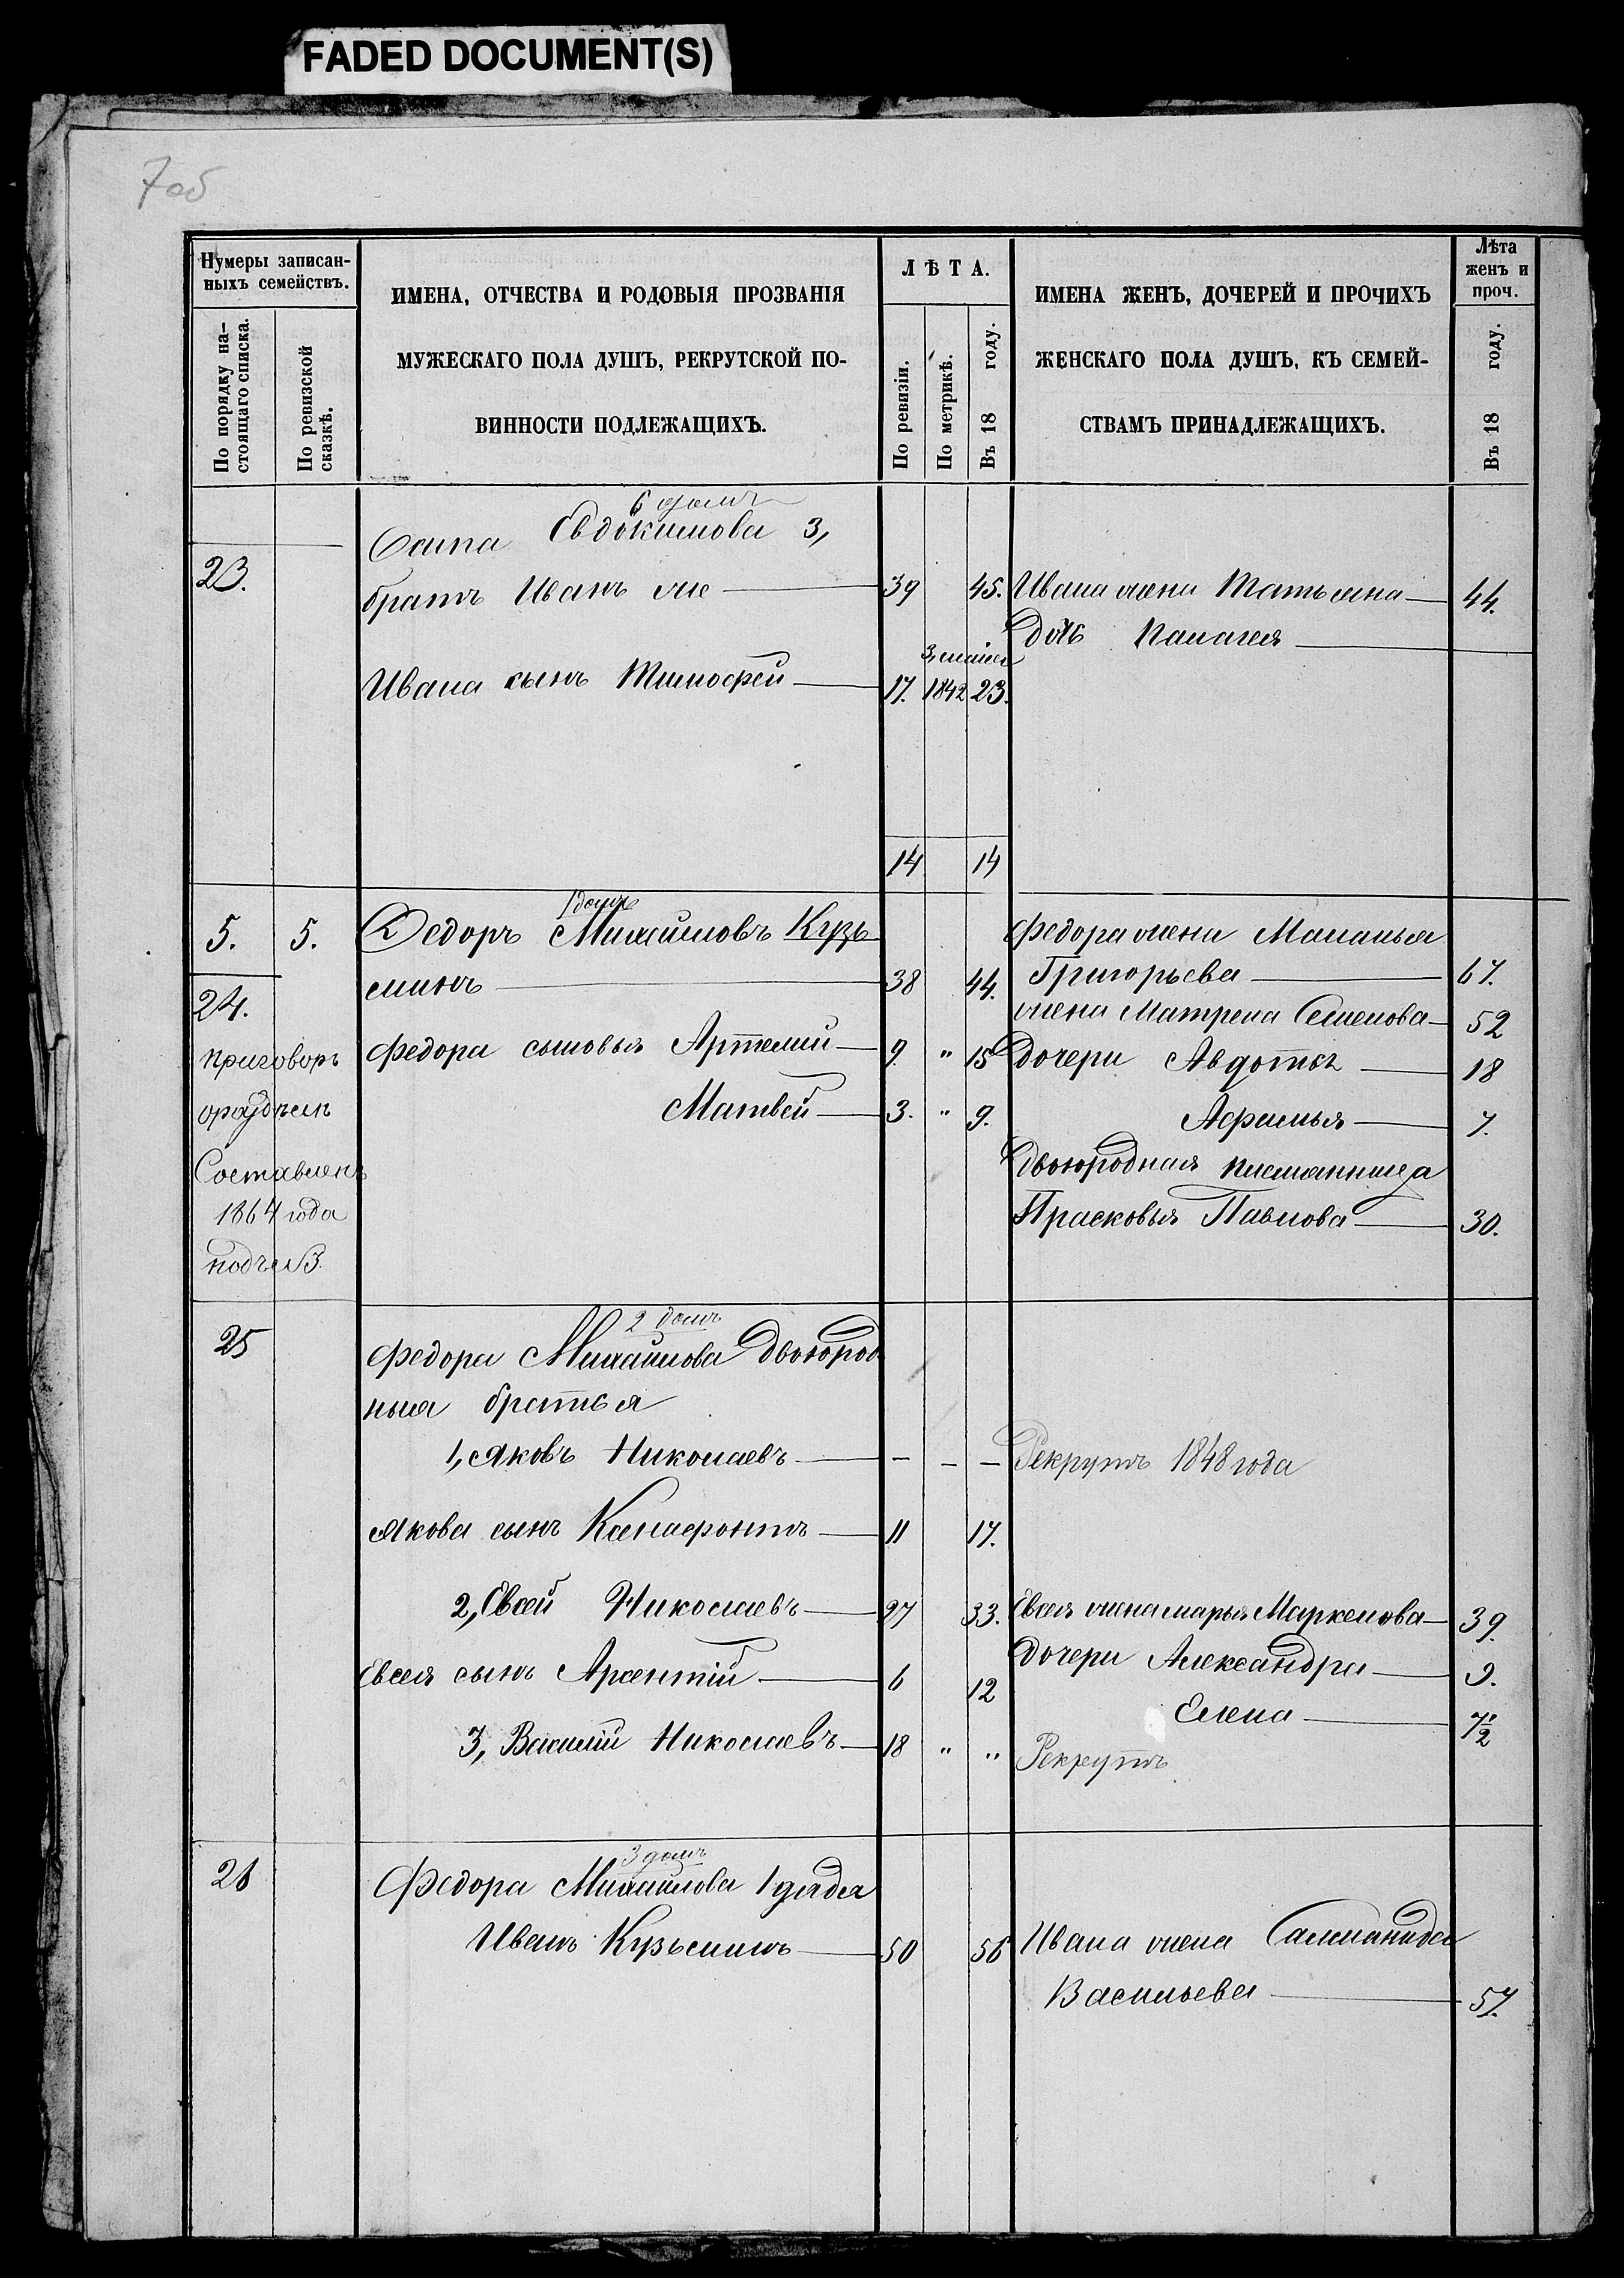 FADED DOCUMENT(S)
7об
Нумеры записан-
ныхъ семействъ.
По порядку на-
стоящаго списка.
По ревизской
сказкѣ.
ИМЕНА, ОТЧЕСТВА И РОДОВЫЯ ПРОЗВАНІЯ
МУЖЕСКАГО ПОЛА ДУШЪ, РЕКРУТСКОЙ ПО-
ВИННОСТИ ПОДЛЕЖАЩИХЪ.
ЛѢТА.
По ревизіи.
По метрикѣ.
Въ 18 году.
ИМЕНА ЖЕНЪ, ДОЧЕРЕЙ И ПРОЧИХЪ
ЖЕНСКАГО ПОЛА ДУШЪ, КЪ СЕМЕЙ-
СТВАМЪ ПРИНАДЛЕЖАЩИХЪ.
Лѣта
женъ и
проч.
Въ 18 году.
6 домъ
Осипа Евдокимова 3,
23. братъ Иванъ 39 45. Ивана жена Татьяна 44.
дочь Палагея
Ивана сынъ Тимофей 17. 1842 23.
14 14
1 домъ
5. 5. Федоръ Михайловъ Кузь Федора жена Маланья
минъ 38 44. Григорьева 67.
24. жена Матрена Семенова 52
приговоръ Федора сыновья Артемий 9 " 15 дочери Авдотья 18
Матвей 3. " 9. Афимья 7.
Составленъ двоюродная племянница
1864 года Прасковья Павлова 30.
2 домъ
25 Федора Михайлова двоюрод
ныя братья
1, Яковъ Николаевъ – – – Рекрутъ 1848 года
Якова сынъ Ксенафонтъ 11 17.
2, Евсей Николаевъ 27 33. Евсея жена марья Маркелова 39.
Евсея сынъ Арсентій 6 12 дочери Александра 9.
Елена
3, Василий Николаевъ 18 " " Рекрутъ
3 домъ
26 Федора Михайлова 1 дядя
Иванъ Кузьминъ 50 56 Ивана жена
Васильева 57.